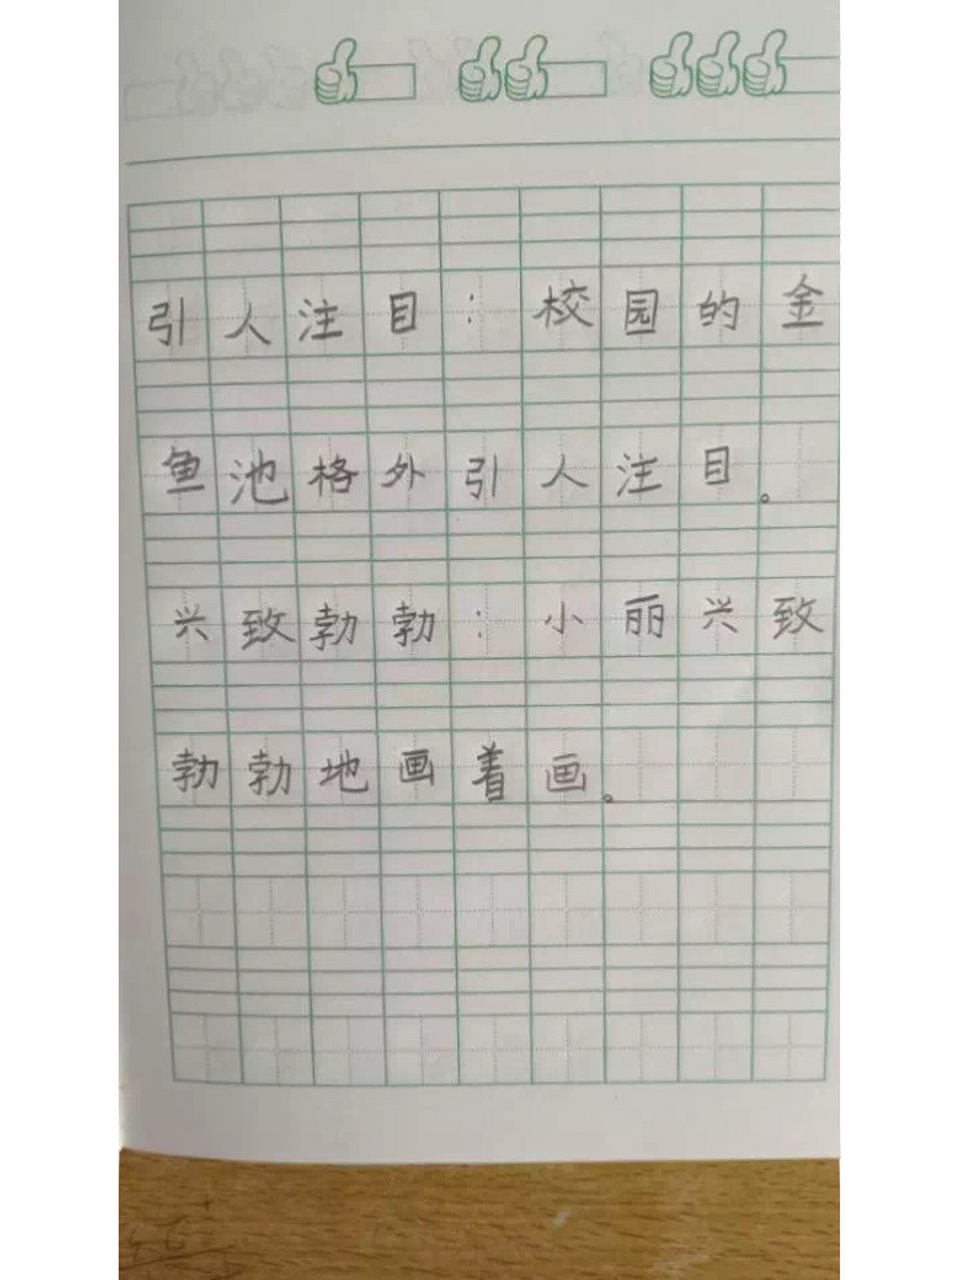 引人注目：校园的金
鱼池格外引人注目。
兴致勃勃：小丽兴致
勃勃地画着画。